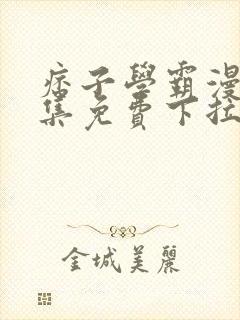 痞子學霸漫
集免費下拉
金城美麗